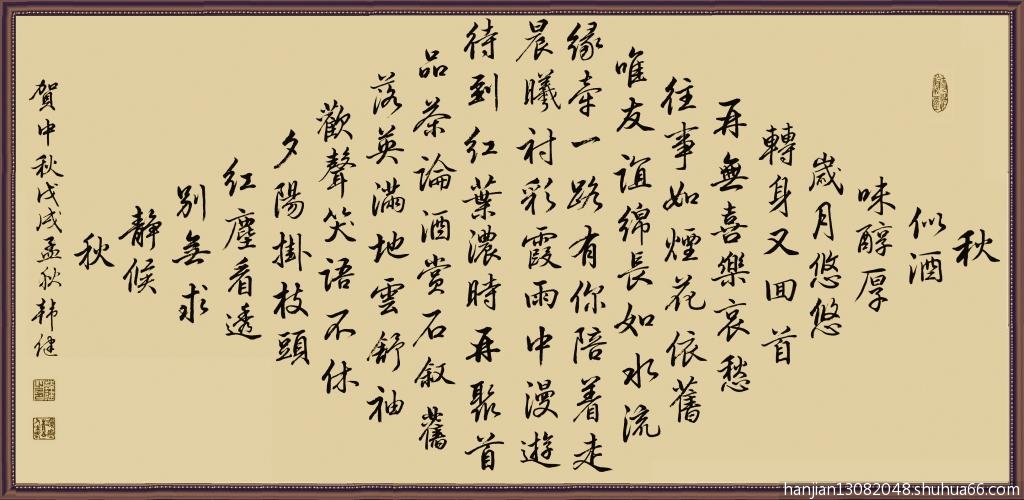 秋
似酒
味醇厚
歲月悠悠
轉身又回首
再無喜樂哀愁
往事如煙花依舊
唯友誼綿長如水流
緣牽一路有你陪着走
晨曦衬彩霞雨中漫遊
待到红葉濃時再聚首
品茶論酒赏石叙舊
落英滿地雲舒袖
歡聲笑語不休
夕陽掛枝頭
红塵看透
别無求
静候
秋
賀中秋戊戌孟秋韩健
hanjian13082048.shuhua66.com